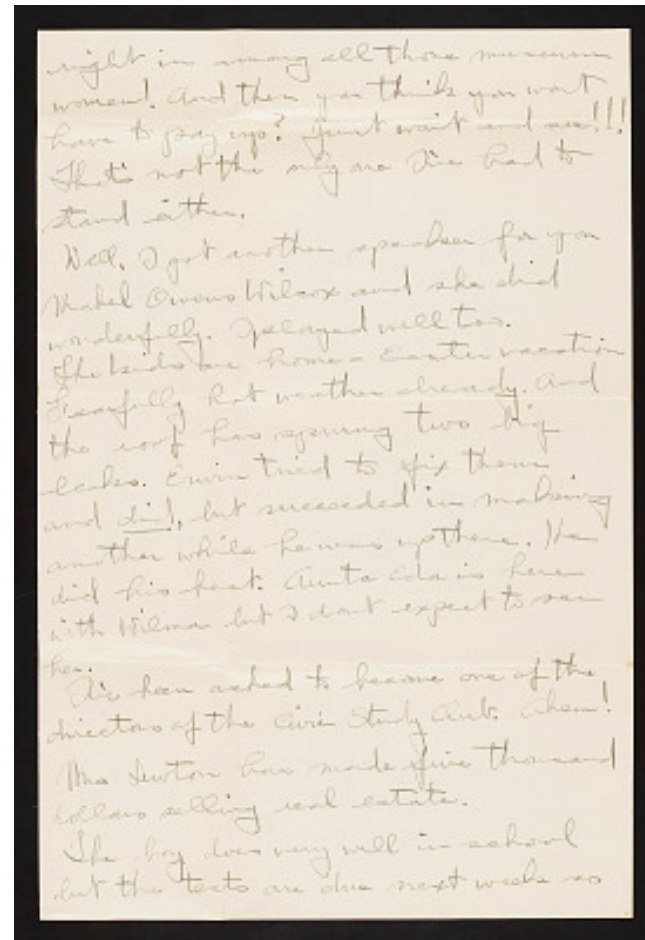 right in among all those museum
women! And then you think you wont
have to pay up? Just wait and see!!!
That's not the only one I've had to
stand either.
Well, I got another speaker for you
Mabel Owens Wilcox and she did
wonderfully. I played well too.
The kids are home - Easter vacation
Fearfully hot weather already. And
the roof has sprung two big
leaks. Erwin tried to fix them
and did, but succeeded in making
another while he was up there. He
did his best. Aunta Eda is here
with Wilma but I dont expect to see
her.
I've been asked to become one of the
directors of the Civic Study Club. Ahem!
Mrs Newton has made five thousand
dollars selling real estate.
The boy does very well in school
but the tests are due next week so